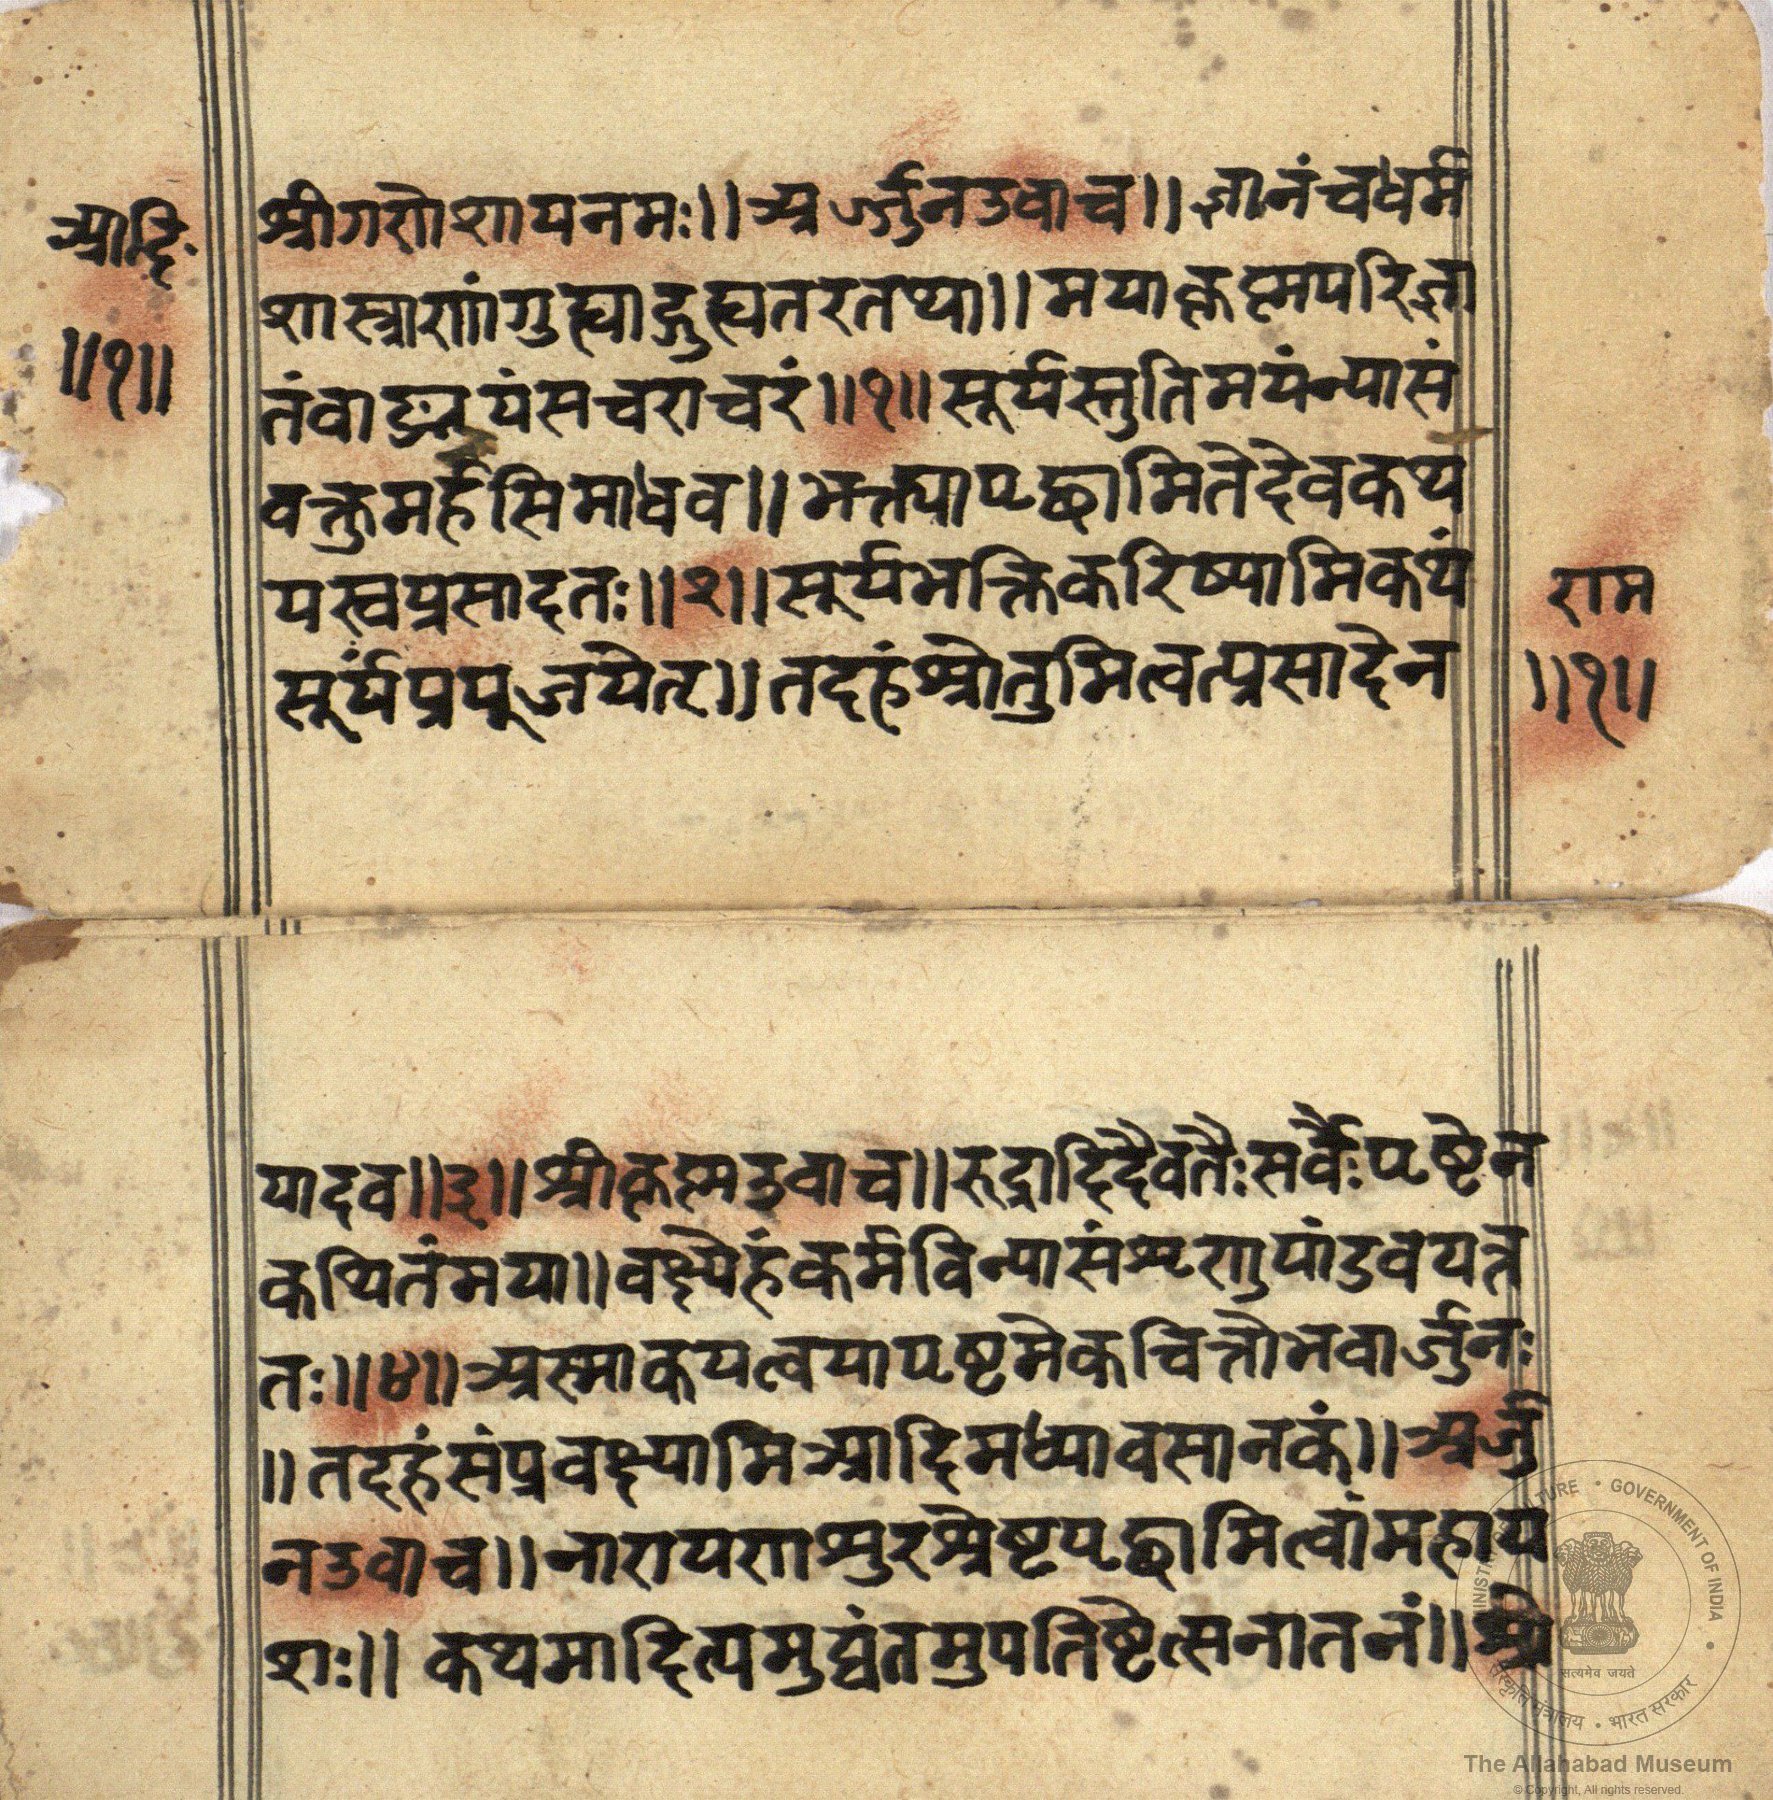 श्रीगणेशायनमः॥अर्ज्जुनउवाच॥ज्ञानंचधर्म
आदि॰
शास्त्राणांगुह्याद्गुह्यतरतथा॥मयाकृष्णपरिज्ञा
॥१॥
तंवाङ्मयंसचराचरं॥१॥सूर्यस्तुतिमयंन्यासं
वक्तुमर्हसिमाधव॥भक्त्यापृछामितेदेवकथ
यस्वप्रसादतः॥२॥सूर्यभक्तिकरिष्यामिकथं
राम
सूर्यंप्रपूजयेत्॥तदहंश्रोतुमित्वत्प्रसादेन
॥१॥
यादव॥३॥श्रीकृष्णउवाच॥रुद्रादिदैवतैःसर्वैःपृष्टेन
कथितंमया॥वक्ष्येहंकर्मविन्यासंशृणुपांडवयत्न
तः॥४॥अस्माकयत्वयापृष्टमेकचित्तोभवार्जुनः
॥तदहंसंप्रवक्ष्यामिआदिमध्यावसानकं॥अर्जु
नउवाच॥नारायणशुरश्रेष्टपृछामित्वांमहाय
शः॥कथमादित्यमुद्यंतमुपतिष्टेत्सनातनं॥श्री
MINISTRY OF CULTURE • GOVERNMENT OF INDIA
सत्यमेव जयते
संस्कृति मंत्रालय • भारत सरकार
The Allahabad Museum
© Copyright, All rights reserved.